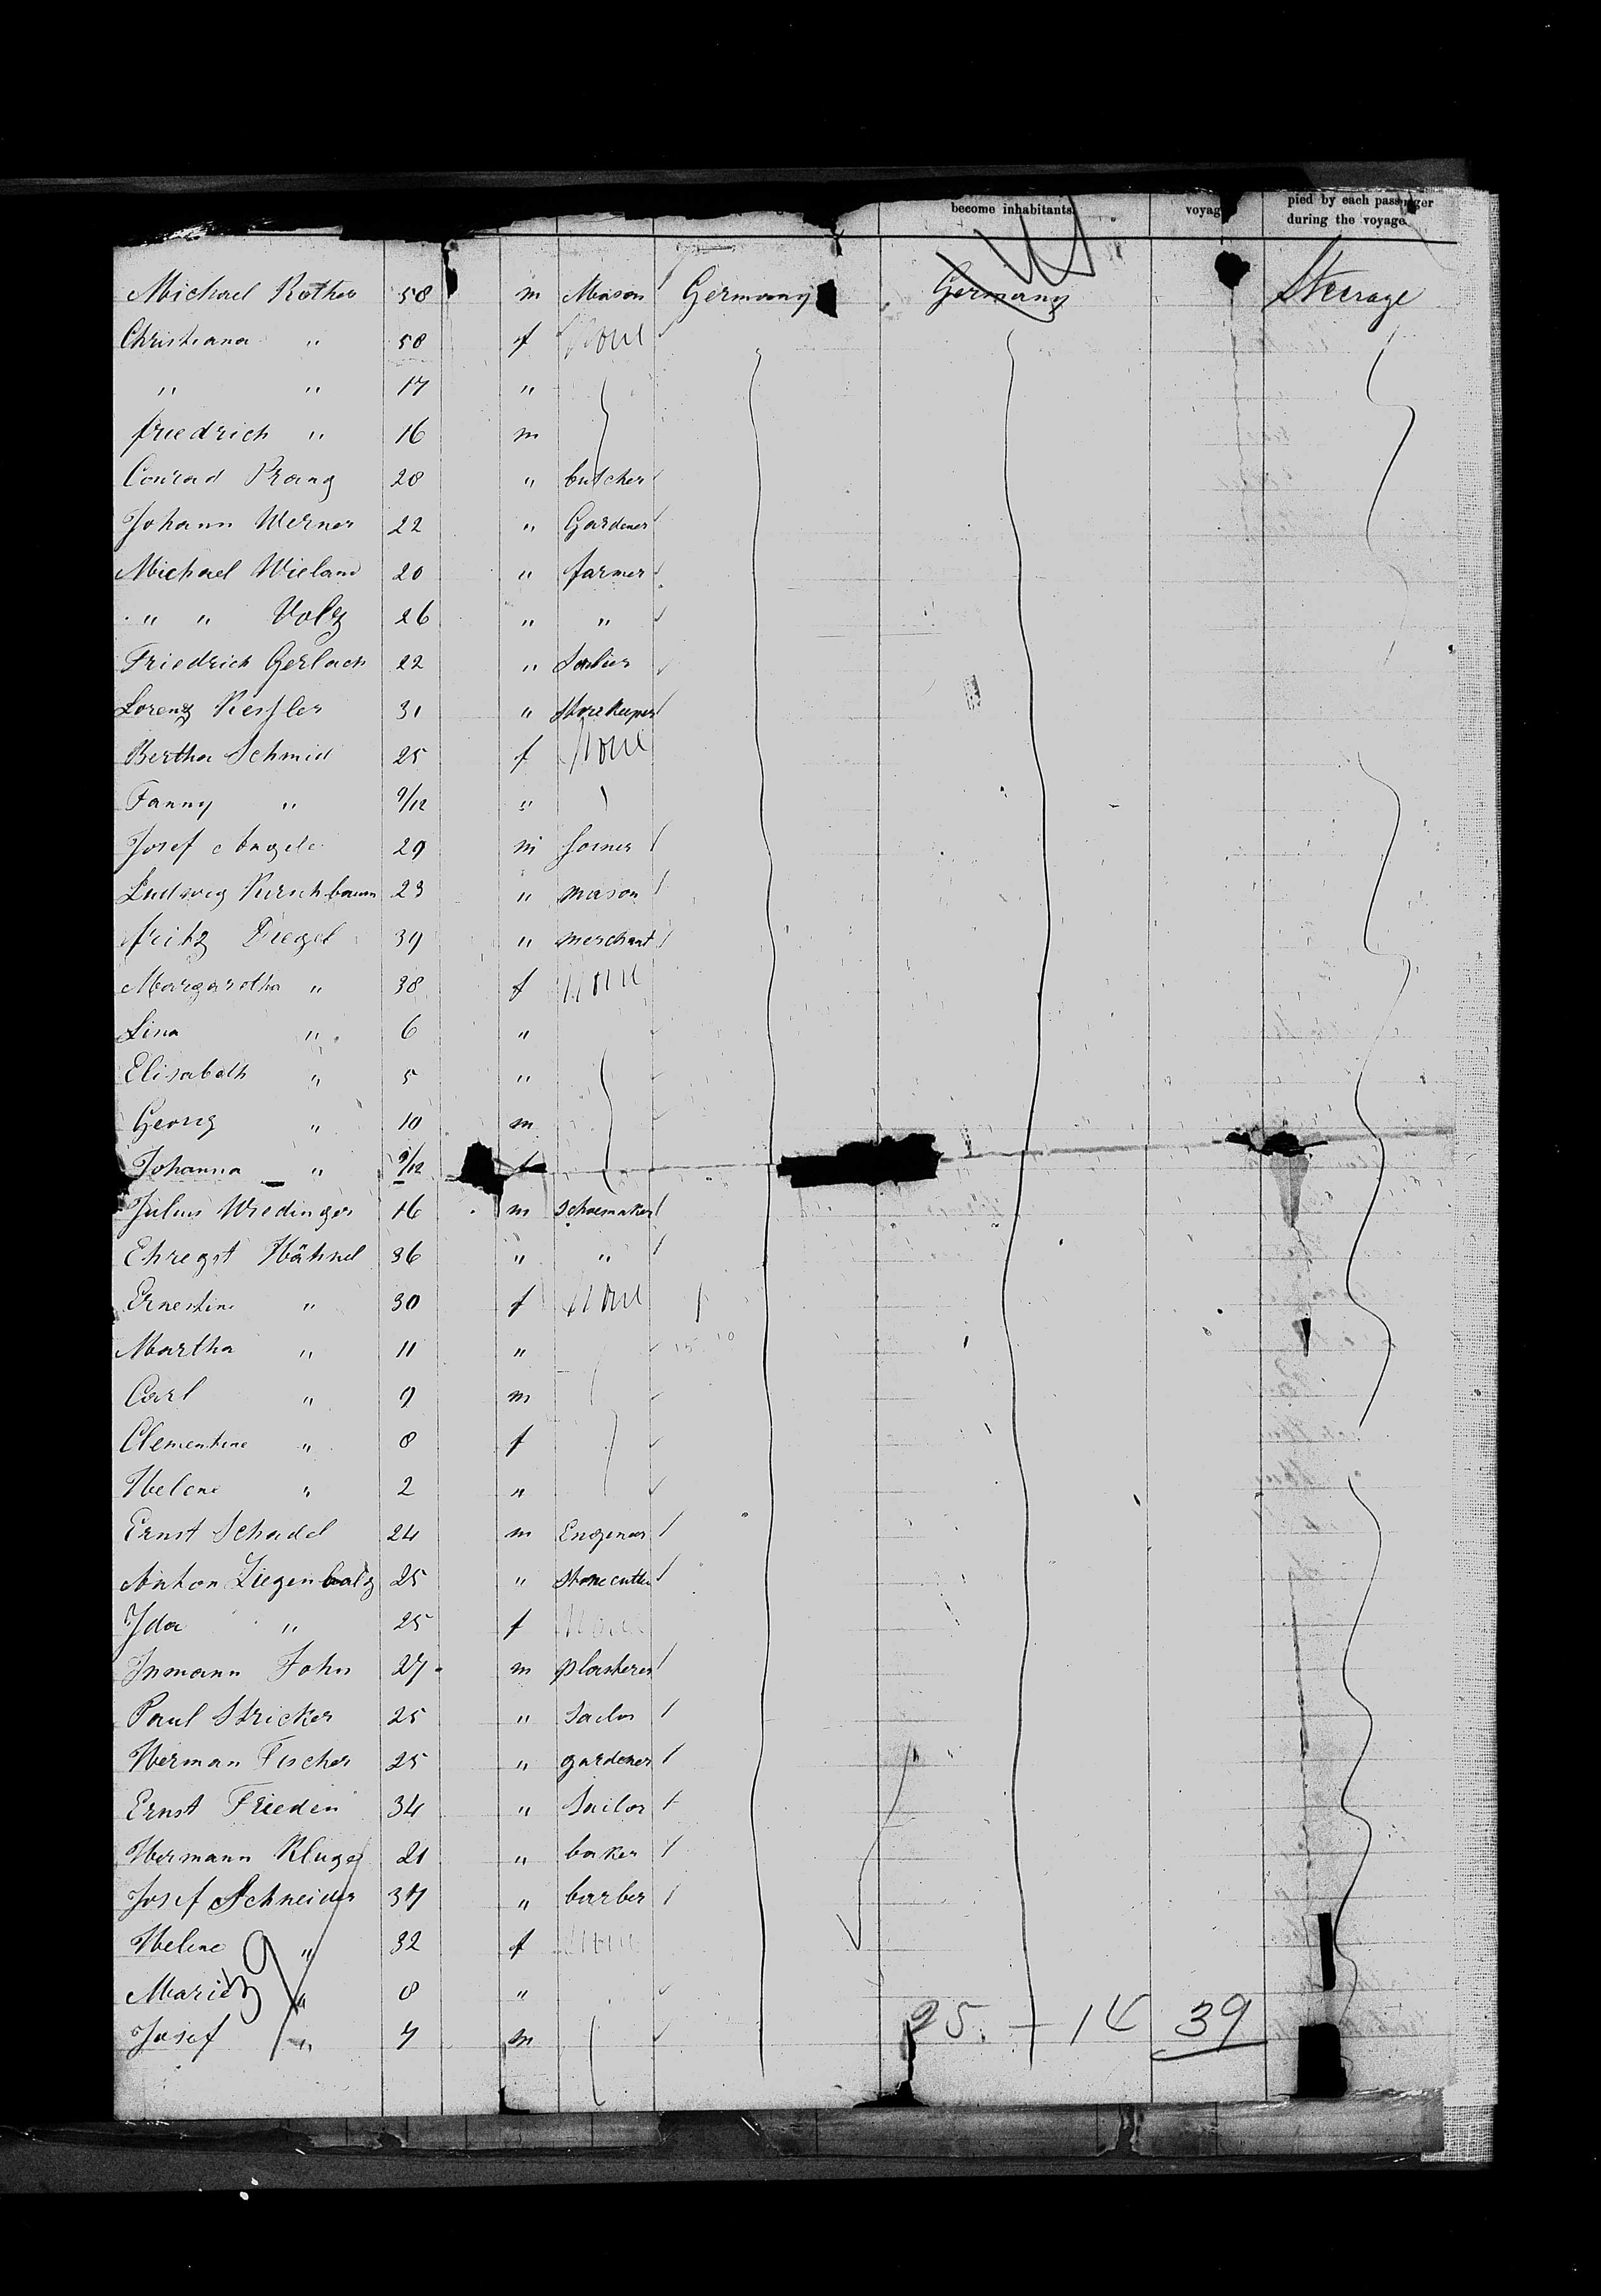 become inhabitants. voyag pied by each passenger
during the voyage
Michael Rother 58 m Mason Germany Germany Steerage
Christiana " 58 f None
" " 17 "
friedrich " 16 m
Conrad Prang 28 " butcher
Johann Werner 22 " Gardener
Michael Wieland 20 " farmer
" " Volz 26 " "
Friedrich Gerlach 22 "
Lorenz Kessler 31 " Storekeeper
Bertha Schmid 25 f None
Fanny " 9/12 "
Josef Angele 29 m
Ludwig Kirschbaum 23 " mason
fritz Diegel 39 " merchant
Margaretha " 38 f None
Lina " 6 "
Elisabeth " 5 "
Georg " 10 m
Johanna " 9/12 f
Julius Wiedinger 16 m Schoemaker
Ehregst Hähnel 36 " "
Ernestine " 30 f None
Martha " 11 "
Carl " 9 m
Clementine " 8 f
Helene " 2 "
Ernst Schadel 24 m Engenar
Anton Ziegenbalg 25 " Stonecutter
Ida " 25 f None
Inmann John 27 m plasterer
Paul Stricker 25 " Sailor
Herman Fischer 25 " gardener
Ernst Frieden 34 " Sailor
Hermann Kluge 21 " baker
Josef Schneider 37 " barber
Helene " 32 f None
Marie " 8 "
Josef " 7 m
39
25 - 14 39